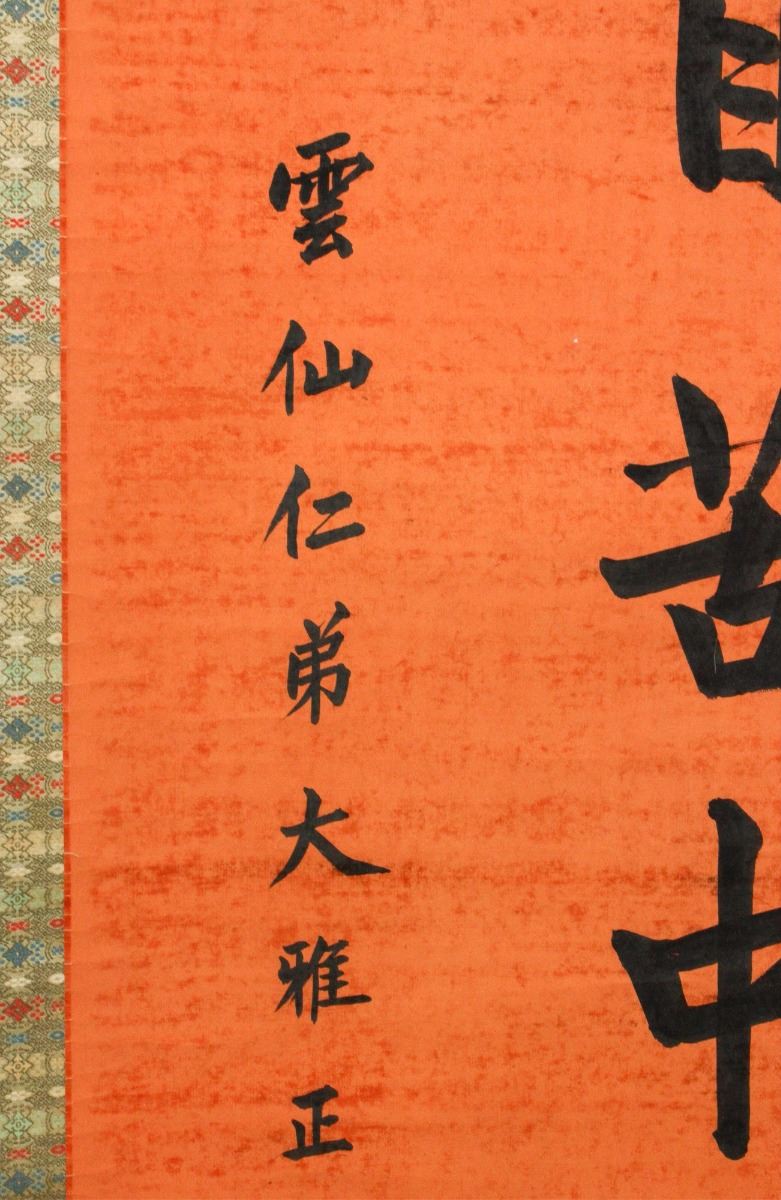 自苦中
雲仙仁弟大雅正